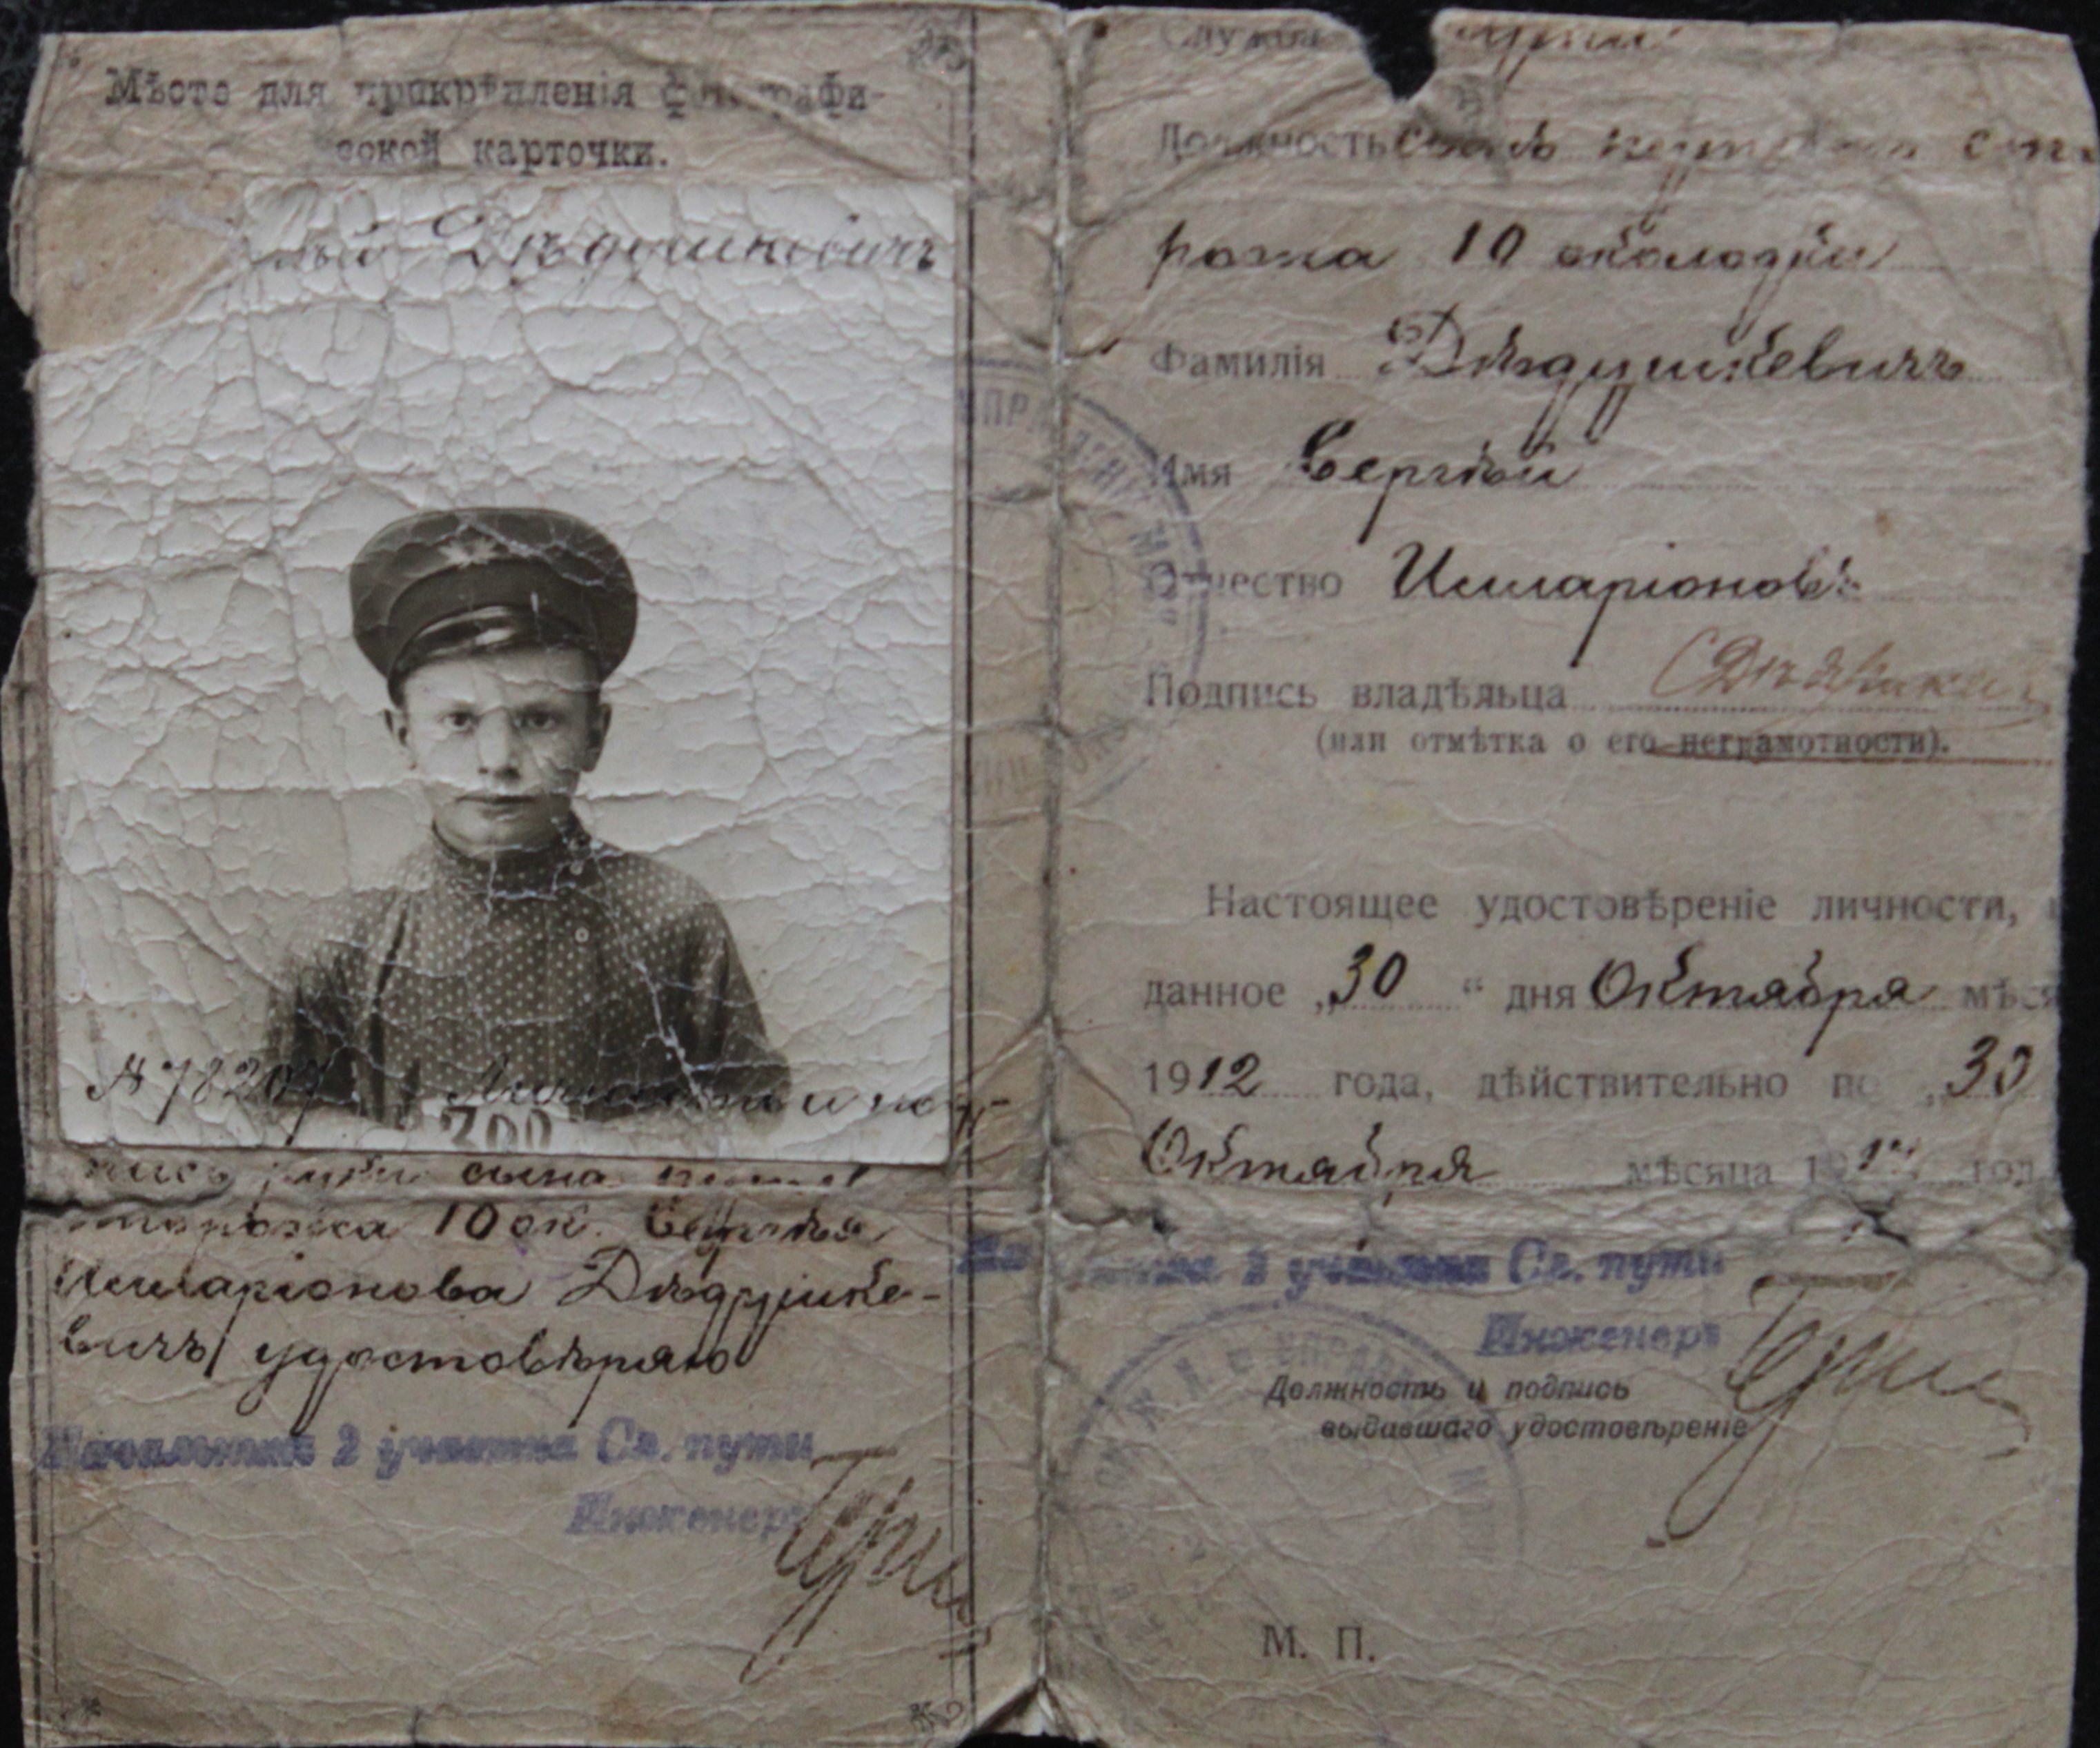 Мѣсто для прикрѣпленія фотографи-
ческой карточки.
Дѣдушкевичъ
№ 78207
Личность и под-
300
пись руки сына путев
сторожа 10 ок. Сергѣя
Илларіонова Дѣдушке-
вичъ удостовѣряю
Начальникъ 2 участка Сл. пути
Инженеръ
Служба
Должность сынъ путевого сто
рожа 10 околодки
Фамилія Дѣдушкевичъ
Имя Сергѣй
Отчество Илларіоновъ
Подпись владѣльца
(или отмѣтка о его неграмотности).
Настоящее удостовѣреніе личности,
данное „30 “ дня Октября мѣся
1912 года, дѣйствительно по „30
Октября мѣсяца 19 год
2 участка Сл. пути
Инженеръ
Должность и подпись
выдавшаго удостовѣреніе
М. П.